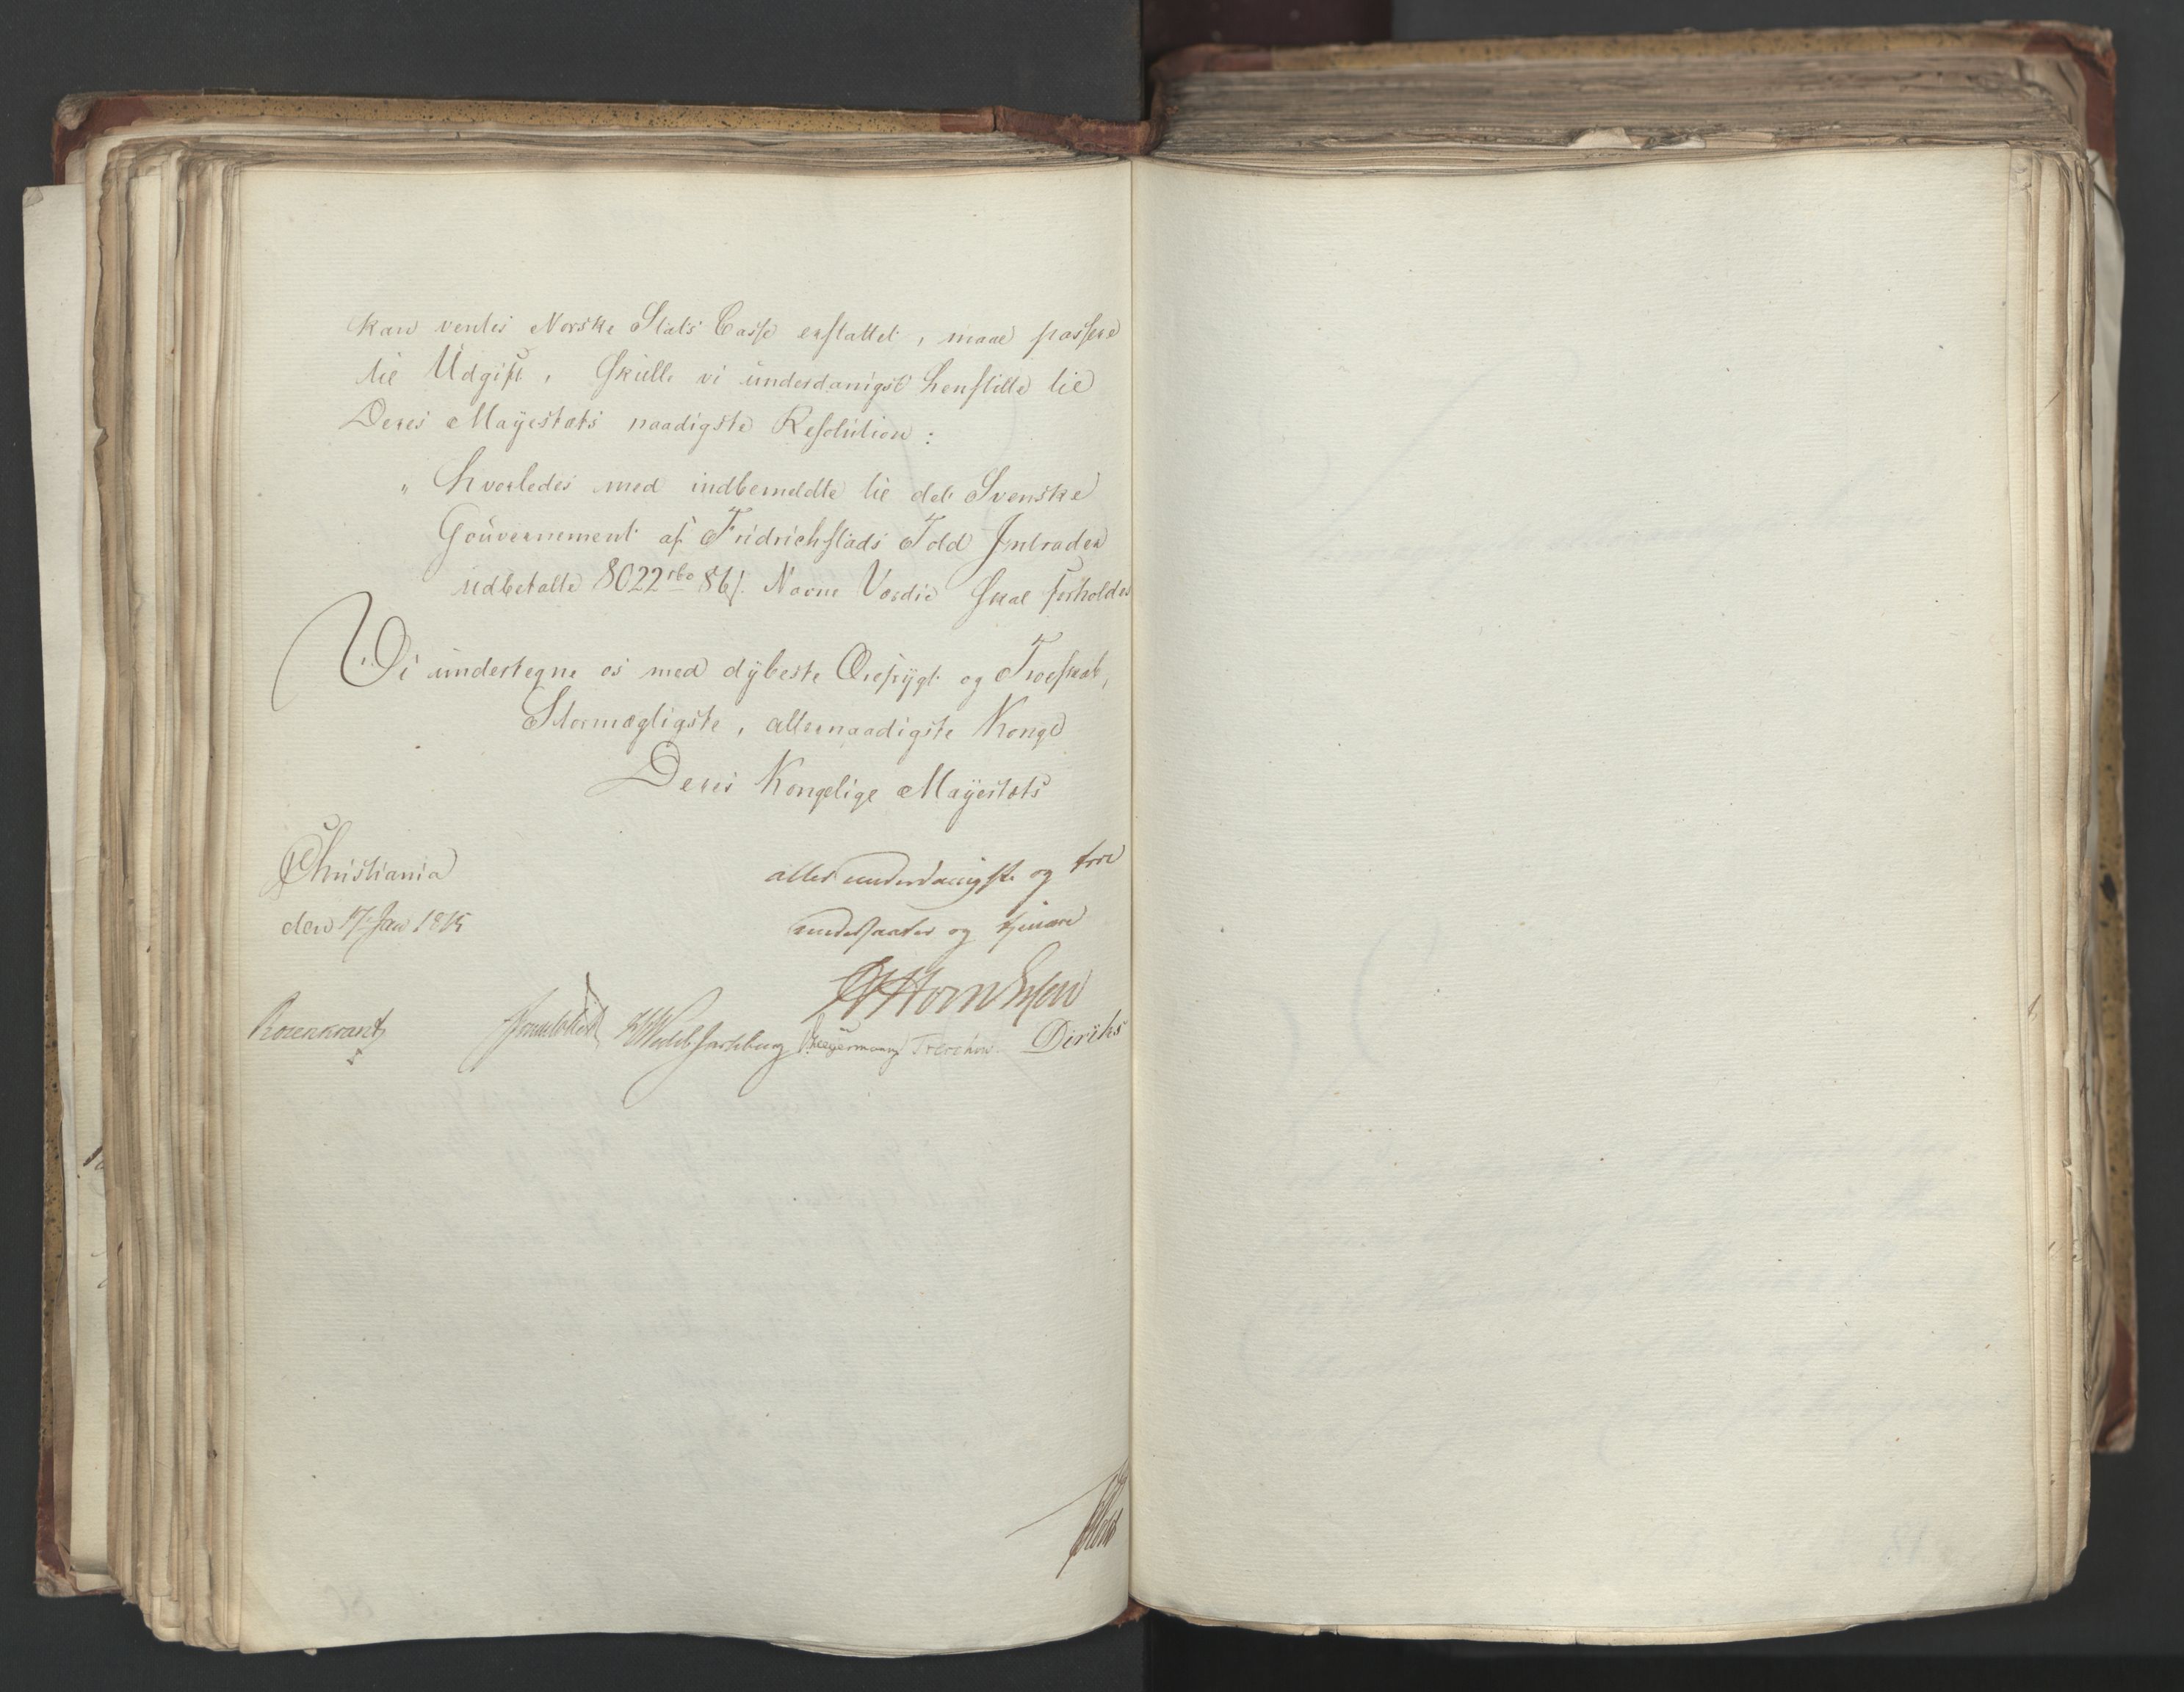 kan ventes Norske Stats Casse erstattet, maae passere
til Udgift, skulle vi underdanigst henstille til
Deres Mayestæts naadigste Resolution:
„ hvorledes med indbemeldte til det Svenske
Gouvernement af Fridrichstads Told Intrader
udbetalte 8022 rbd 86 s. Navne Værdie skal forholdes
Vi undertegne os med dybeste Ærefrygt og Troeskab,
Stormægtigste, allernaadigste Konge
Deres Kongelige Mayestæts
Christiania
den 17 Jan 1815
allerunderdanigste og troe
undersaatter og tjenere
Rosenkrantz
Sommerhielm
HWedel Jarlsberg
Hegermann
Treschow
Diriks